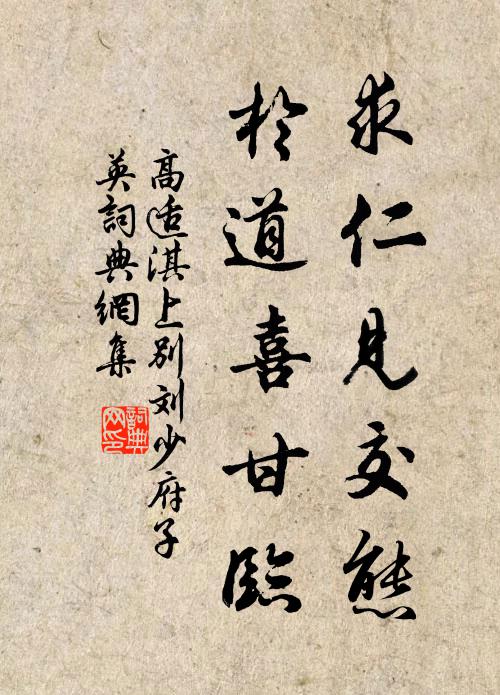 求仁見交態
於道喜甘臨
高适淇上別刘少府子
英詞典網集
詞典网印